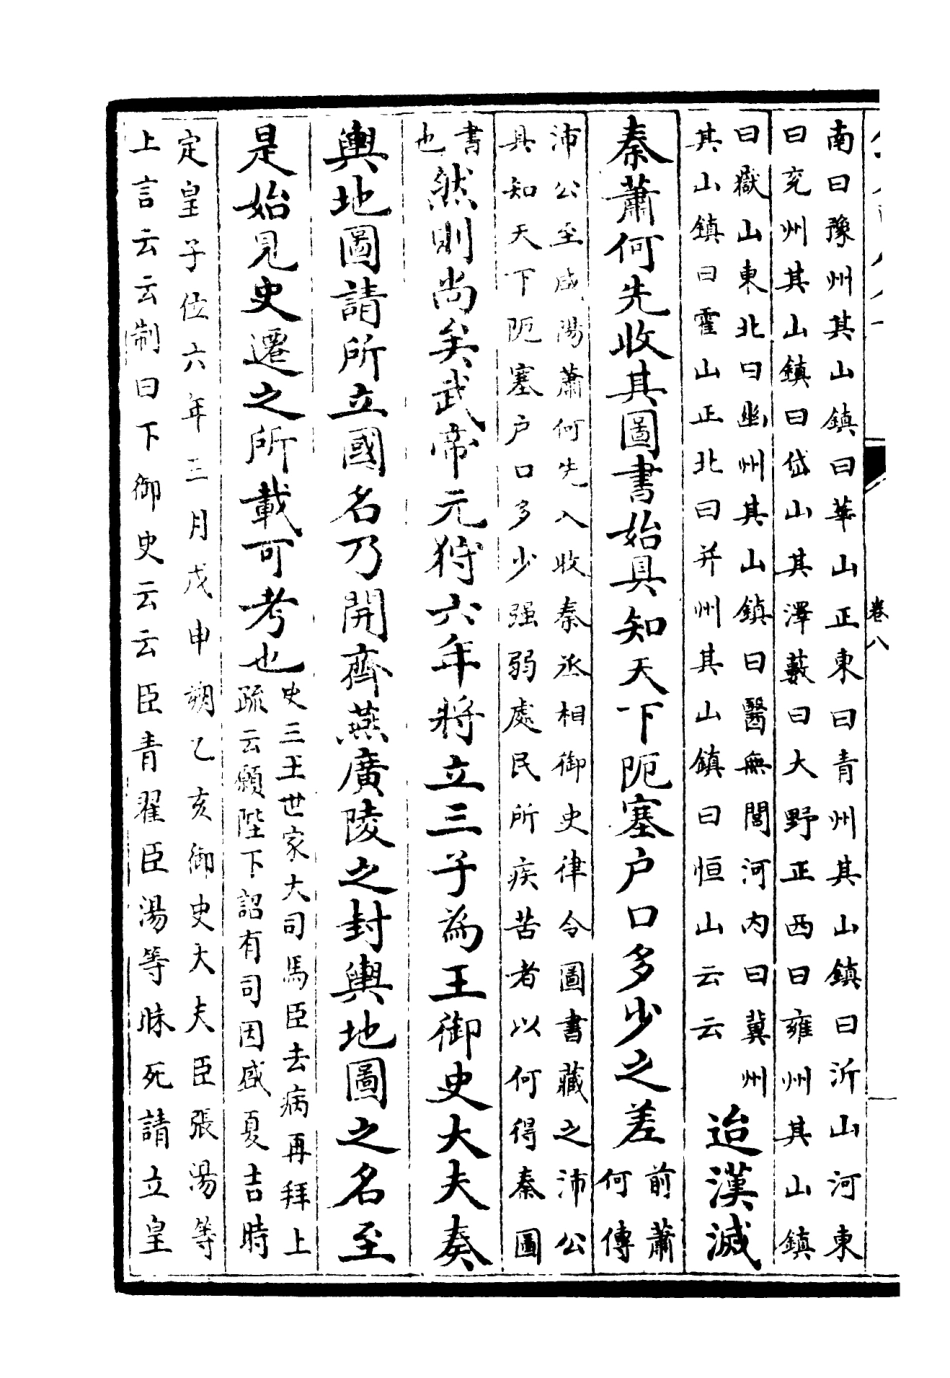 卷八
南曰豫州其山鎮曰華山正東曰青州其山鎮曰沂山河東
曰兖州其山鎮曰岱山其澤藪曰大野正西曰雍州其山鎮
曰嶽山東北曰幽州其山鎮曰醫無閭河内曰冀州
其山鎮曰霍山正北曰并州其山鎮曰恒山云云
迨漢滅
秦蕭何先收其圖書始具知天下阨塞户口多少之差
前蕭
何傳
沛公至咸陽蕭何先入收秦丞相御史律令圖書藏之沛公
具知天下阨塞户口多少强弱處民所疾苦者以何得秦圖
書
也
然則尚矣武帝元狩六年將立三子為王御史大夫奏
輿地圖請所立國名乃開齊燕廣陵之封輿地圖之名至
是始見史遷之所載可考也
史三王世家大司馬臣去病再拜上
疏云願陛下詔有司因盛夏吉時
定皇子位六年三月戊申朔乙亥御史大夫臣張湯等
上言云云制曰下御史云云臣青翟臣湯等昧死請立皇